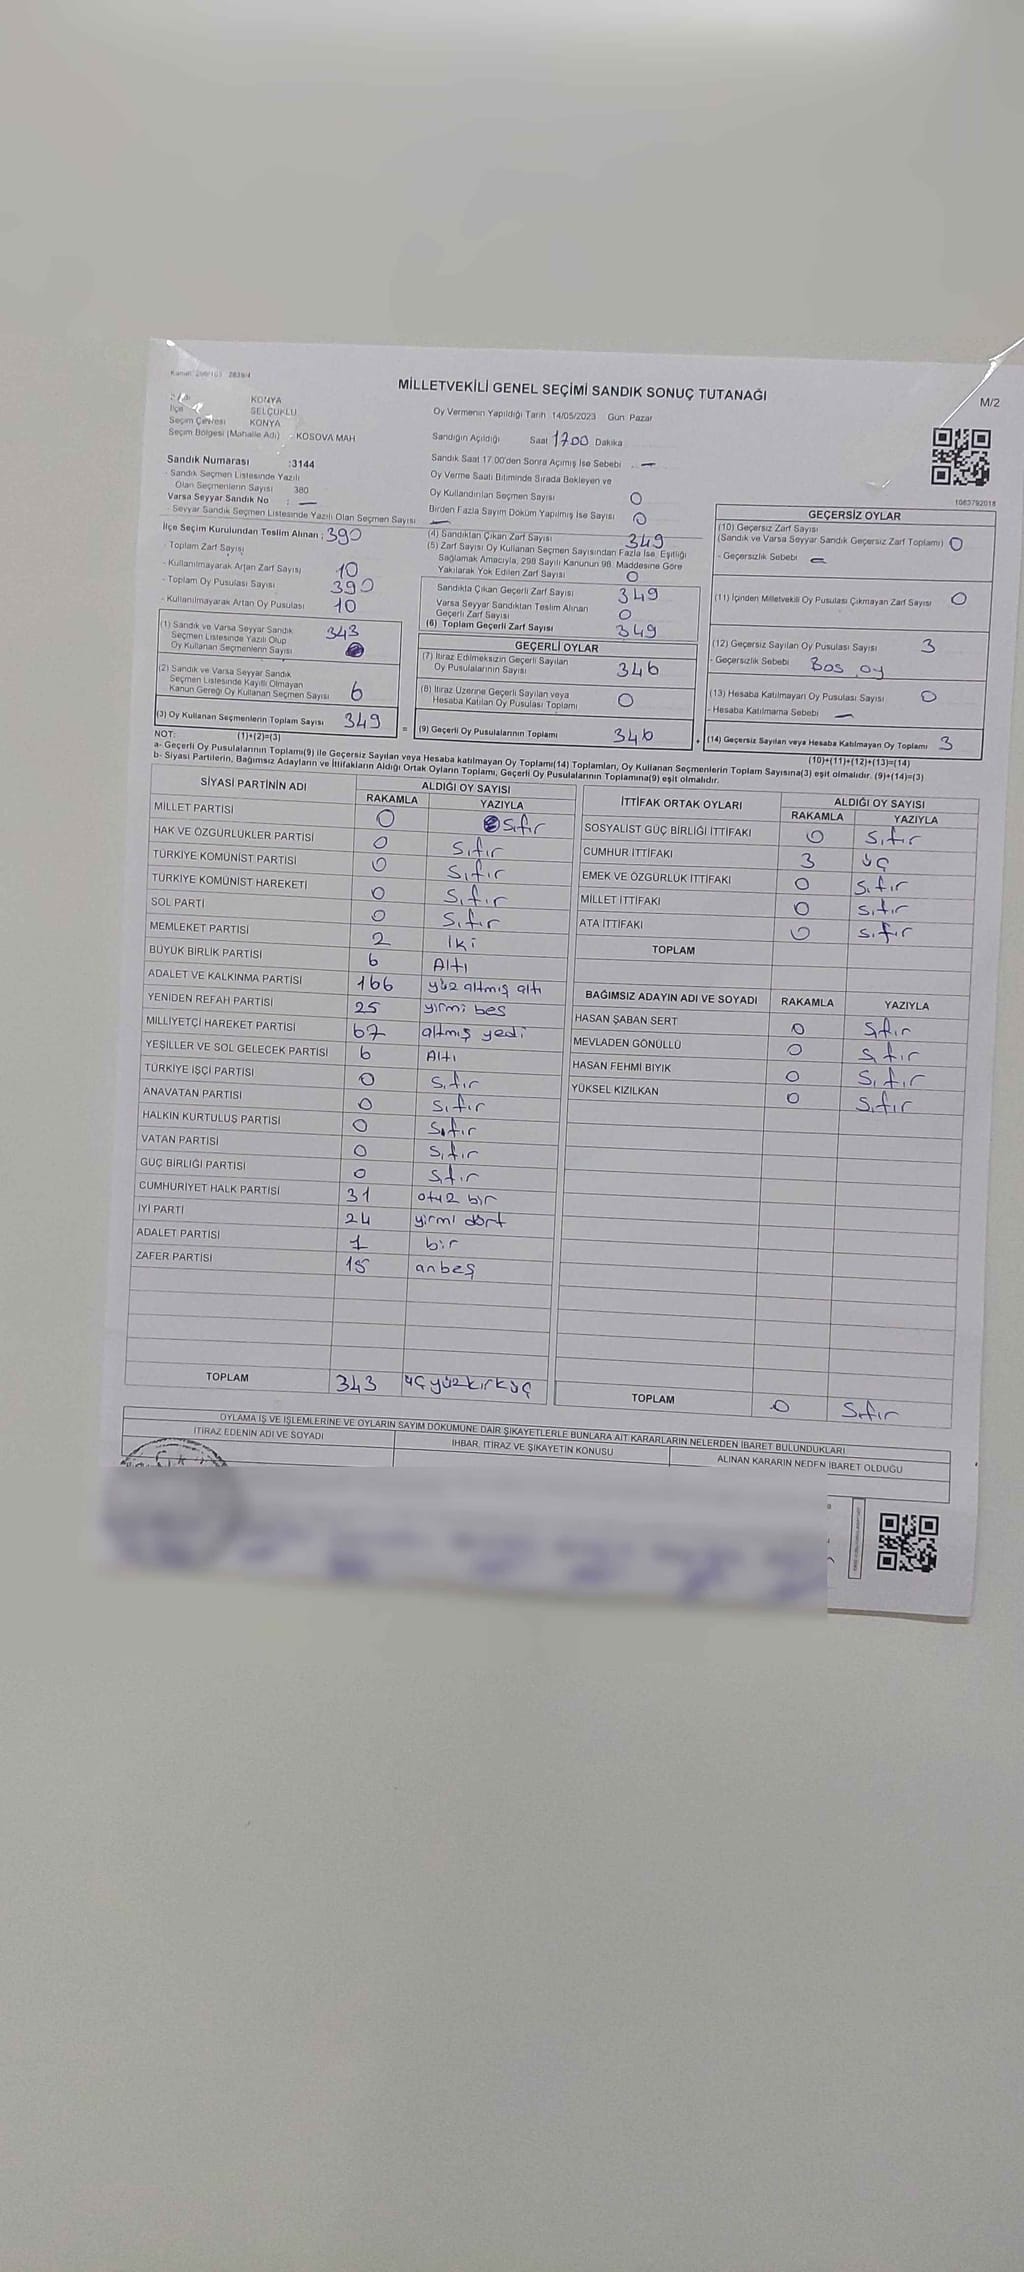 Kanun: 298/103 2839/4
MİLLETVEKİLİ GENEL SEÇİMİ SANDIK SONUÇ TUTANAĞI
M/2
KONYA
İlçe SELÇUKLU
Seçim Çevresi KONYA
Seçim Bölgesi (Mahalle Adı) - KOSOVA MAH
Oy Vermenin Yapıldığı Tarih 14/05/2023 Gün Pazar
Sandığın Açıldığı Saat 1700 Dakika
Sandık Saat 17.00'den Sonra Açımış İse Sebebi : —
Oy Verme Saati Bitiminde Sırada Bekleyen ve
Oy Kullandırılan Seçmen Sayısı 0
Birden Fazla Sayım Döküm Yapılmış İse Sayısı 0
1063792018
Sandık Numarası :3144
- Sandık Seçmen Listesinde Yazılı
Olan Seçmenlerin Sayısı 380
Varsa Seyyar Sandık No : —
- Seyyar Sandık Seçmen Listesinde Yazılı Olan Seçmen Sayısı —
İlçe Seçim Kurulundan Teslim Alınan : 390
- Toplam Zarf Sayısı
- Kullanılmayarak Artan Zarf Sayısı 10
- Toplam Oy Pusulası Sayısı 390
- Kullanılmayarak Artan Oy Pusulası 10
(1) Sandık ve Varsa Seyyar Sandık
Seçmen Listesinde Yazılı Olup
Oy Kullanan Seçmenlerin Sayısı 343
(2) Sandık ve Varsa Seyyar Sandık
Seçmen Listesinde Kayıtlı Olmayan
Kanun Gereği Oy Kullanan Seçmen Sayısı 6
(3) Oy Kullanan Seçmenlerin Toplam Sayısı 349
(4) Sandıktan Çıkan Zarf Sayısı 349
(5) Zarf Sayısı Oy Kullanan Seçmen Sayısından Fazla İse, Eşitliği
Sağlamak Amacıyla, 298 Sayılı Kanunun 98. Maddesine Göre
Yakılarak Yok Edilen Zarf Sayısı 0
Sandıkta Çıkan Geçerli Zarf Sayısı 349
Varsa Seyyar Sandıktan Teslim Alınan
Geçerli Zarf Sayısı 0
(6) Toplam Geçerli Zarf Sayısı 349
GEÇERLİ OYLAR
(7) İtiraz Edilmeksizin Geçerli Sayılan
Oy Pusulalarının Sayısı 346
(8) İtiraz Üzerine Geçerli Sayılan veya
Hesaba Katılan Oy Pusulası Toplamı 0
= (9) Geçerli Oy Pusulalarının Toplamı 346
GEÇERSİZ OYLAR
(10) Geçersiz Zarf Sayısı
(Sandık ve Varsa Seyyar Sandık Geçersiz Zarf Toplamı) 0
- Geçersizlik Sebebi —
(11) İçinden Milletvekili Oy Pusulası Çıkmayan Zarf Sayısı 0
(12) Geçersiz Sayılan Oy Pusulası Sayısı 3
- Geçersizlik Sebebi Bos oy
(13) Hesaba Katılmayan Oy Pusulası Sayısı 0
- Hesaba Katılmama Sebebi —
+ (14) Geçersiz Sayılan veya Hesaba Katılmayan Oy Toplamı 3
NOT: (1)+(2)=(3)
(10)+(11)+(12)+(13)=(14)
a- Geçerli Oy Pusulalarının Toplamı(9) ile Geçersiz Sayılan veya Hesaba katılmayan Oy Toplamı(14) Toplamları, Oy Kullanan Seçmenlerin Toplam Sayısına(3) eşit olmalıdır. (9)+(14)=(3)
b- Siyasi Partilerin, Bağımsız Adayların ve İttifakların Aldığı Ortak Oyların Toplamı, Geçerli Oy Pusulalarının Toplamına(9) eşit olmalıdır.
SİYASİ PARTİNİN ADI ALDIĞI OY SAYISI
RAKAMLA YAZIYLA
MİLLET PARTİSİ 0 Sıfır
HAK VE ÖZGÜRLÜKLER PARTİSİ 0 Sıfır
TÜRKİYE KOMÜNİST PARTİSİ 0 Sıfır
TÜRKİYE KOMÜNİST HAREKETİ 0 Sıfır
SOL PARTİ 0 Sıfır
MEMLEKET PARTİSİ 2 İki
BÜYÜK BİRLİK PARTİSİ 6 Altı
ADALET VE KALKINMA PARTİSİ 166 yüz altmış altı
YENİDEN REFAH PARTİSİ 25 yirmi beş
MİLLİYETÇİ HAREKET PARTİSİ 67 altmış yedi
YEŞİLLER VE SOL GELECEK PARTİSİ 6 Altı
TÜRKİYE İŞÇİ PARTİSİ 0 Sıfır
ANAVATAN PARTİSİ 0 Sıfır
HALKIN KURTULUŞ PARTİSİ 0 Sıfır
VATAN PARTİSİ 0 Sıfır
GÜÇ BİRLİĞİ PARTİSİ 0 Sıfır
CUMHURİYET HALK PARTİSİ 31 otuz bir
İYİ PARTİ 24 yirmi dört
ADALET PARTİSİ 1 bir
ZAFER PARTİSİ 15 onbeş
TOPLAM 343 üçyüzkırküç
İTTİFAK ORTAK OYLARI ALDIĞI OY SAYISI
RAKAMLA YAZIYLA
SOSYALİST GÜÇ BİRLİĞİ İTTİFAKI 0 Sıfır
CUMHUR İTTİFAKI 3 üç
EMEK VE ÖZGÜRLÜK İTTİFAKI 0 Sıfır
MİLLET İTTİFAKI 0 Sıfır
ATA İTTİFAKI 0 Sıfır
TOPLAM
BAĞIMSIZ ADAYIN ADI VE SOYADI RAKAMLA YAZIYLA
HASAN ŞABAN SERT 0 Sıfır
MEVLADEN GÖNÜLLÜ 0 Sıfır
HASAN FEHMİ BIYIK 0 Sıfır
YÜKSEL KIZILKAN 0 Sıfır
TOPLAM 0 Sıfır
OYLAMA İŞ VE İŞLEMLERİNE VE OYLARIN SAYIM DÖKÜMÜNE DAİR ŞİKAYETLERLE BUNLARA AİT KARARLARIN NELERDEN İBARET BULUNDUKLARI
İTİRAZ EDENİN ADI VE SOYADI
İHBAR, İTİRAZ VE ŞİKAYETİN KONUSU
ALINAN KARARIN NEDEN İBARET OLDUĞU